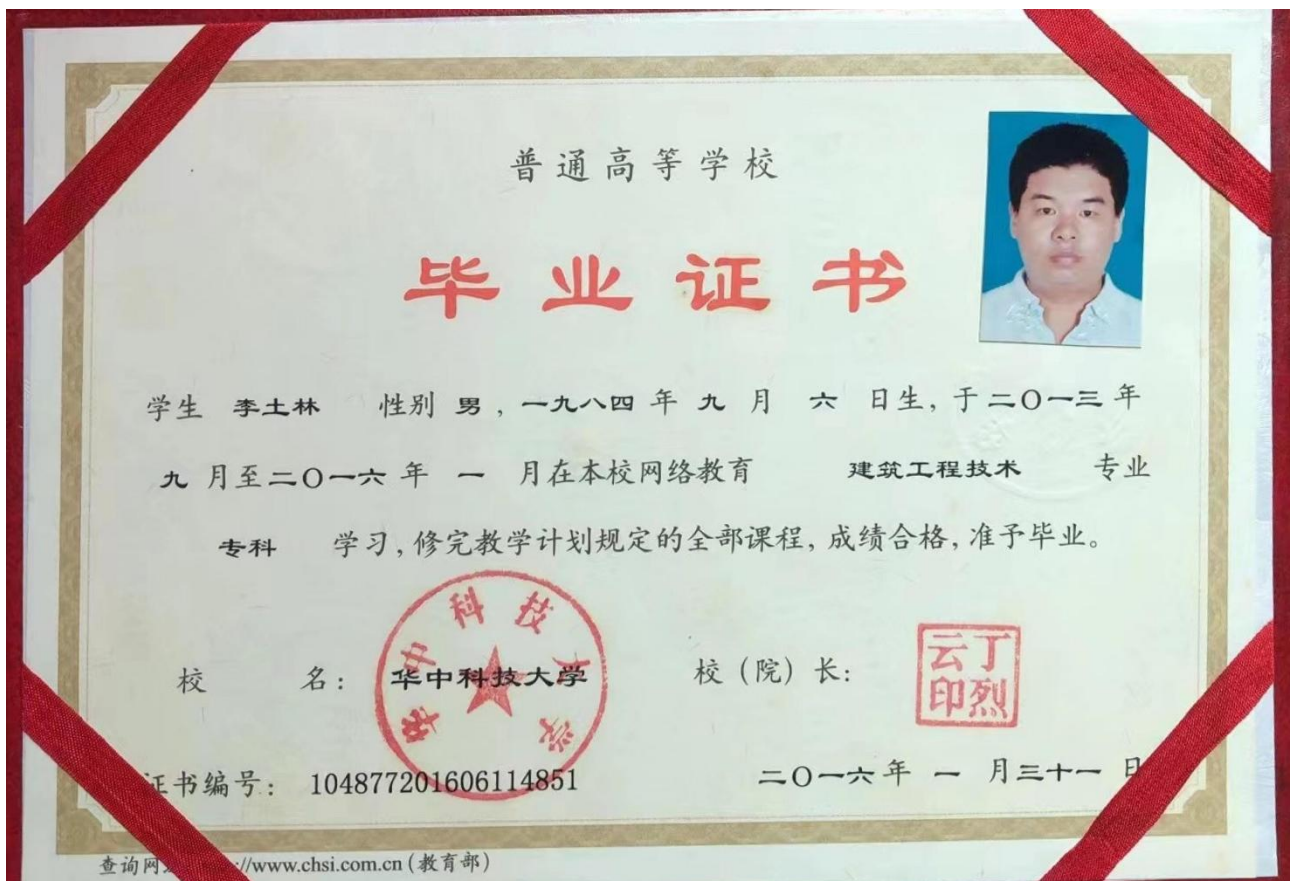 普通高等学校
毕业证书
学生 李土林 性别 男，一九八四 年 九 月 六 日生，于二〇一三 年
九 月至二〇一六 年 一 月在本校网络教育 建筑工程技术 专业
专科 学习，修完教学计划规定的全部课程，成绩合格，准予毕业。
华中科技大学
校 名： 华中科技大学 校（院）长： 丁烈云印
证书编号： 104877201606114851 二〇一六 年 一 月三十一 日
查询网 //www.chsi.com.cn (教育部)